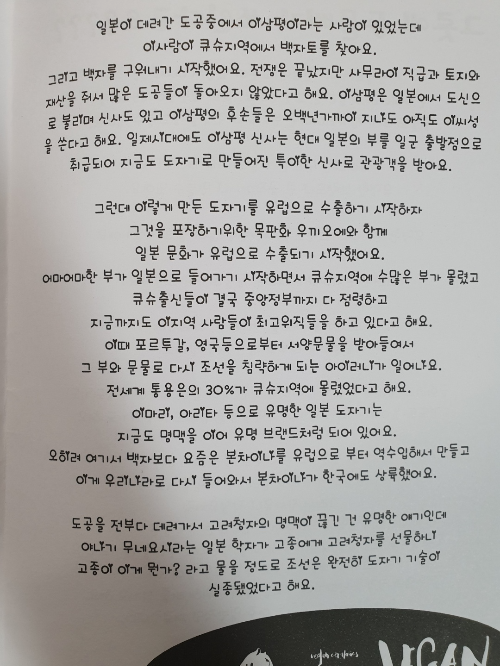 일본이 데려간 도공중에서 이삼평이라는 사람이 있었는데
이사람이 큐슈지역에서 백자토를 찾아요.
그리고 백자를 구워내기 시작했어요. 전쟁은 끝났지만 사무라이 직급과 토지와
재산을 줘서 많은 도공들이 돌아오지 않았다고 해요. 이삼평은 일본에서 도신으
로 불리며 신사도 있고 이삼평의 후손들은 오백년가까이 지나도 아직도 이씨성
을 쓴다고 해요. 일제시대에도 이삼평 신사는 현대 일본의 부를 일군 출발점으로
취급되어 지금도 도자기로 만들어진 특이한 신사로 관광객을 받아요.
그런데 이렇게 만든 도자기를 유럽으로 수출하기 시작하자
그것을 포장하기위한 목판화 우끼오에와 함께
일본 문화가 유럽으로 수출되기 시작했어요.
어마어마한 부가 일본으로 들어가기 시작하면서 큐슈지역에 수많은 부가 몰렸고
큐슈출신들이 결국 중앙정부까지 다 점령하고
지금까지도 이지역 사람들이 최고위직들을 하고 있다고 해요.
이때 포르투갈, 영국등으로부터 서양문물을 받아들여서
그 부와 문물로 다시 조선을 침략하게 되는 아이러니가 일어나요.
전세계 통용은의 30%가 큐슈지역에 몰렸었다고 해요.
이마리, 아리타 등으로 유명한 일본 도자기는
지금도 명맥을 이어 유명 브랜드처럼 되어 있어요.
오히려 여기서 백자보다 요즘은 본차이나를 유럽으로 부터 역수입해서 만들고
이게 우리나라로 다시 들어와서 본차이나가 한국에도 상륙했어요.
도공을 전부다 데려가서 고려청자의 명맥이 끊긴 건 유명한 얘기인데
야나기 무네요시라는 일본 학자가 고종에게 고려청자를 선물하니
고종이 이게 뭔가? 라고 물을 정도로 조선은 완전히 도자기 기술이
실종됐었다고 해요.
VEGAN